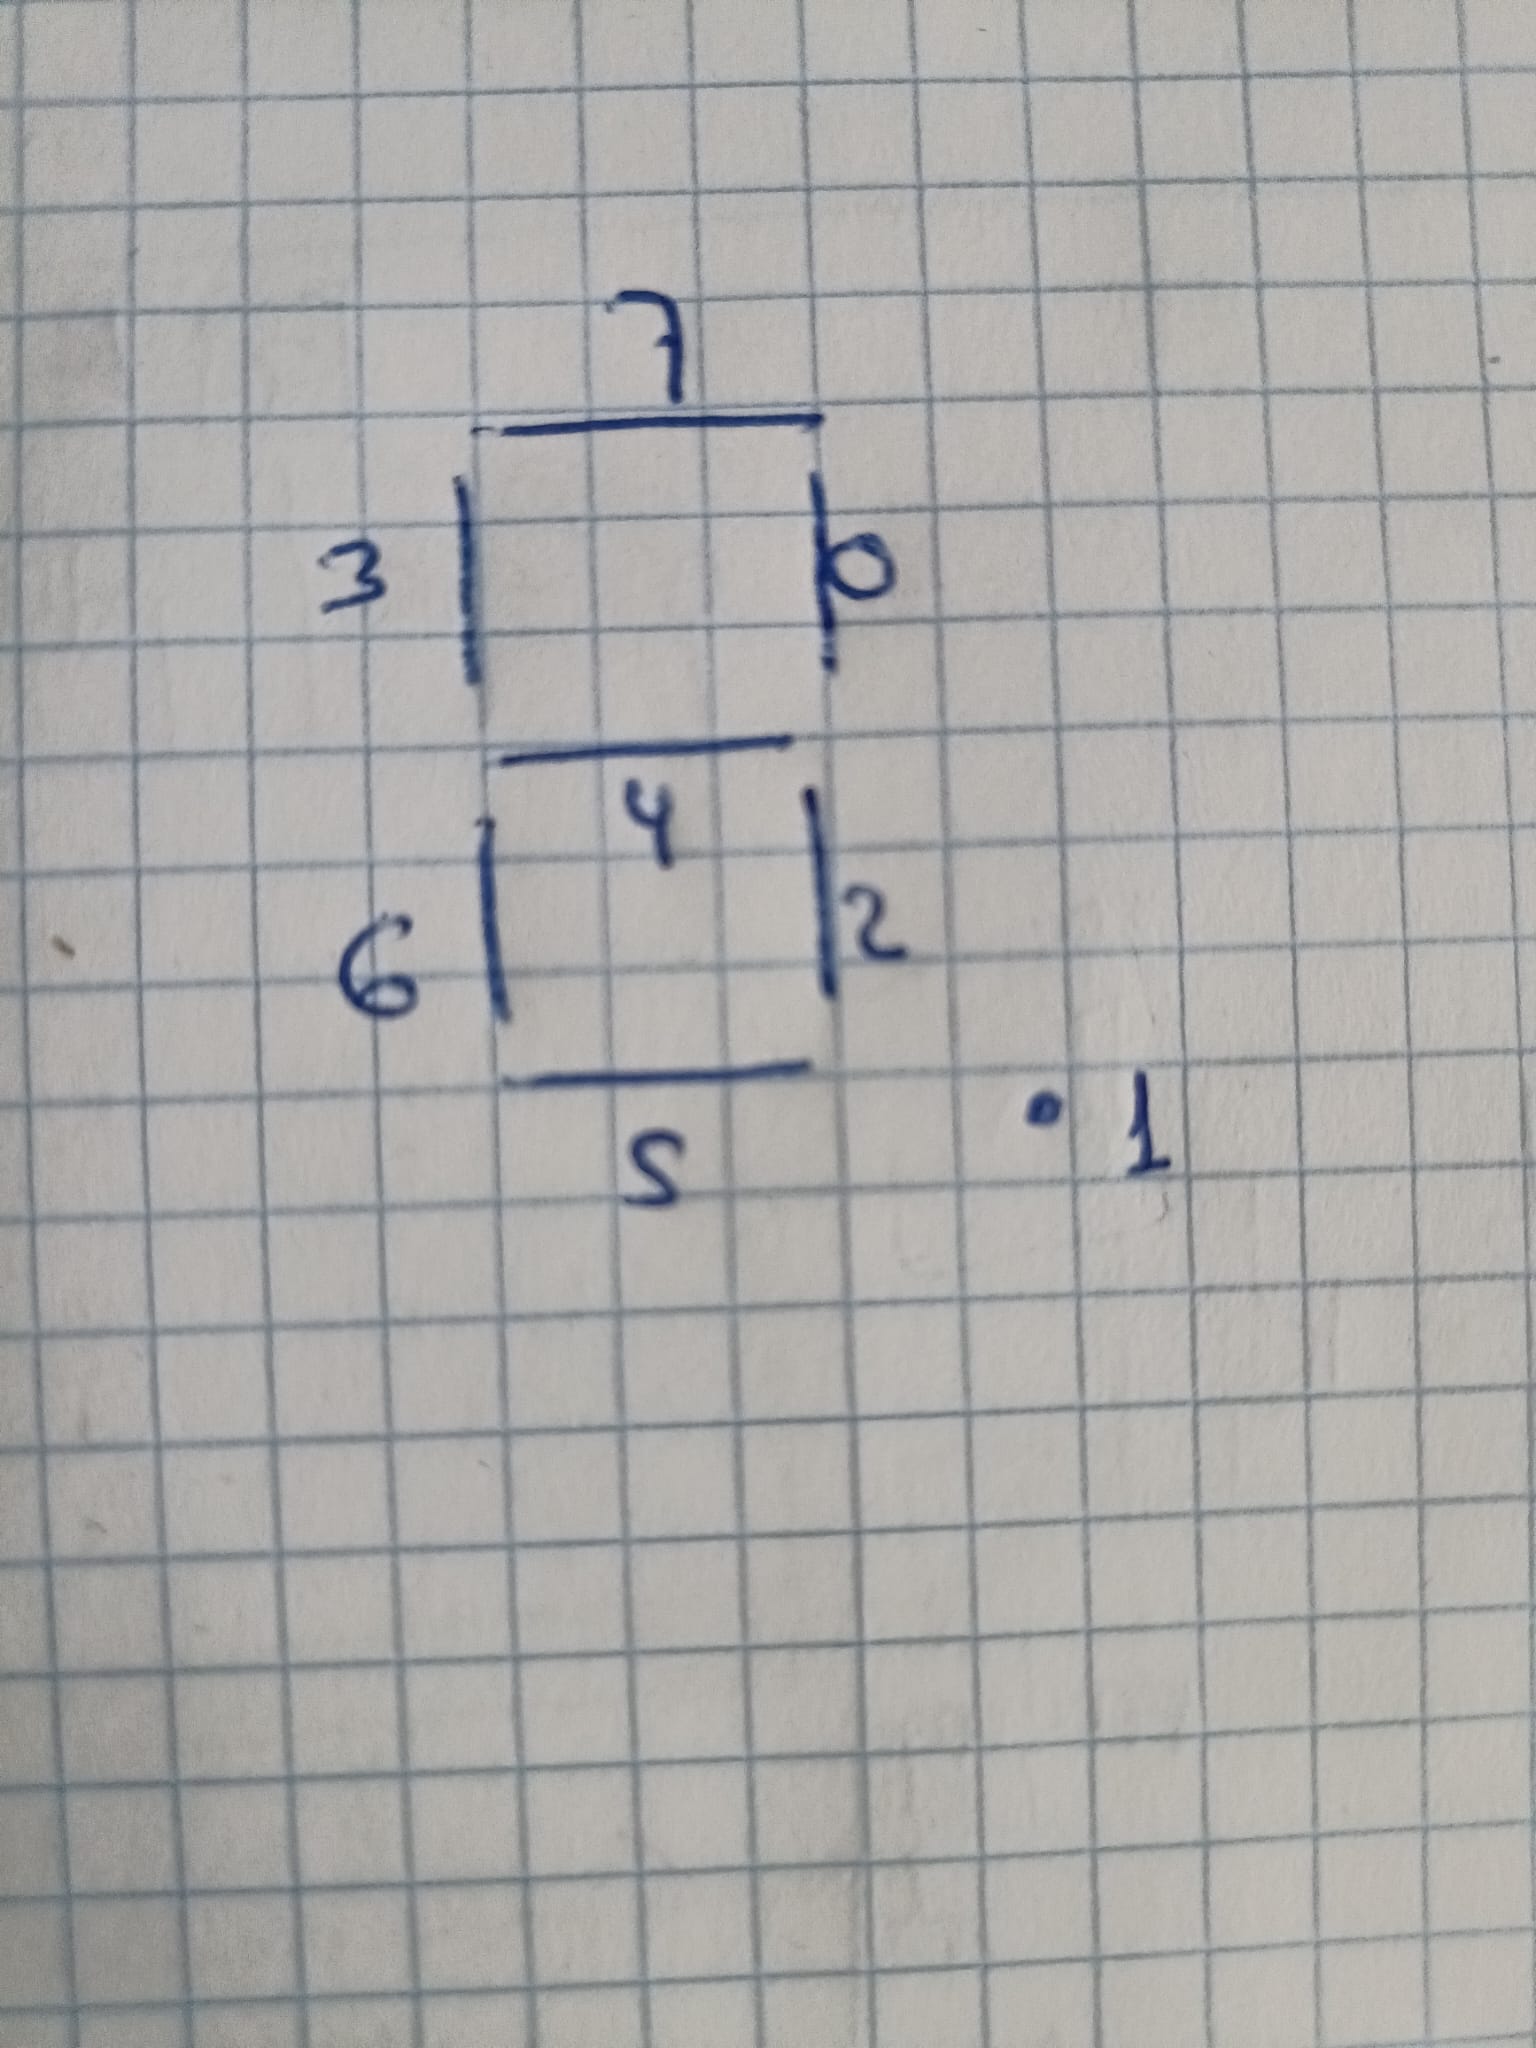 7
3 0
4
6 2
5
. 1